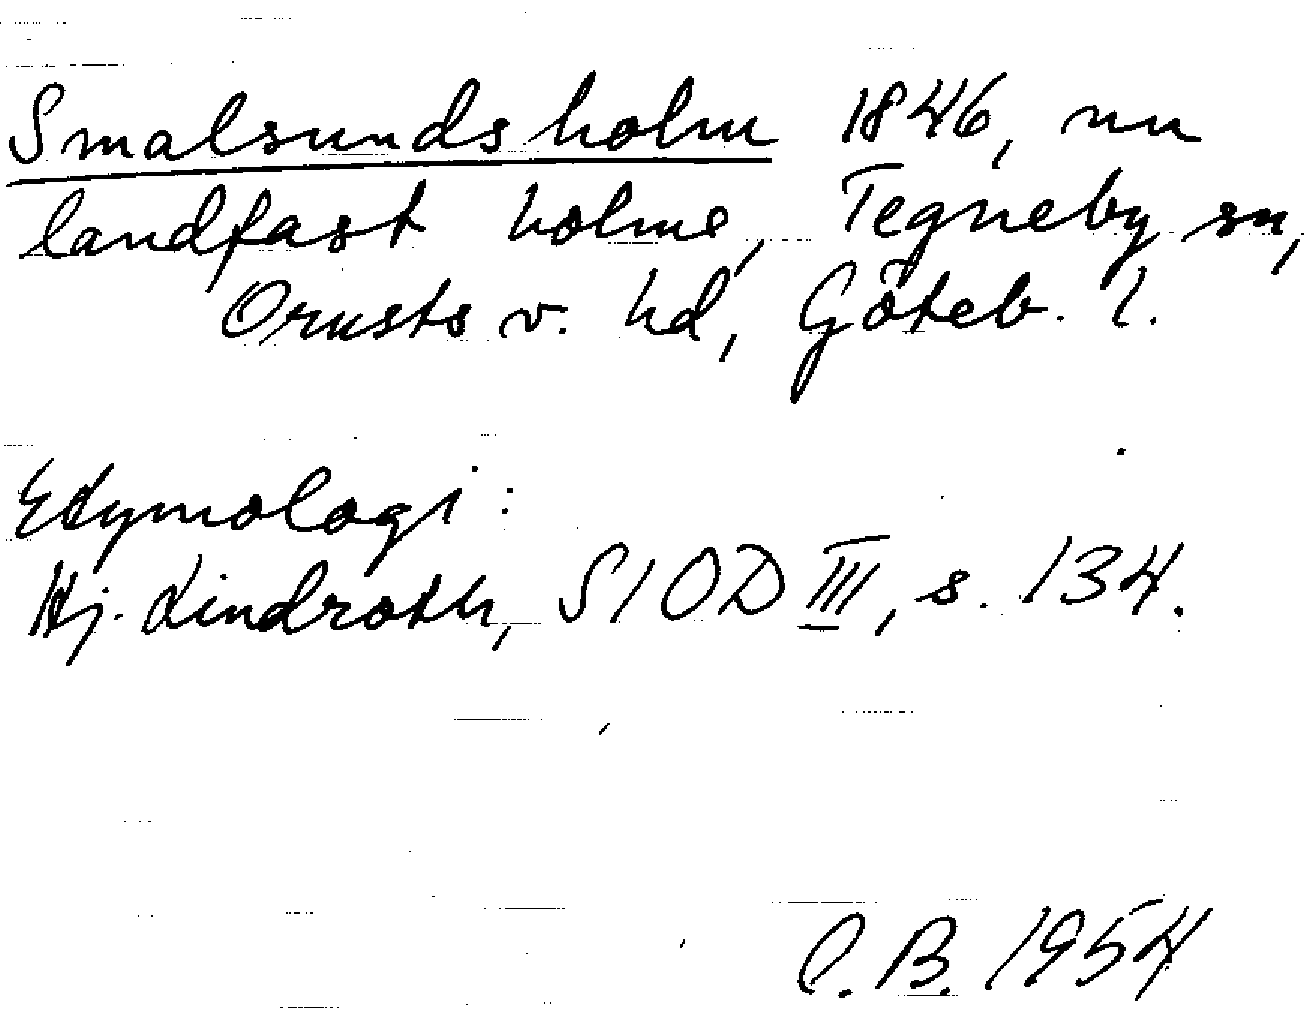 Smalsundsholm 1846, nu
landfast holme, Tegneby sn,
Orusts v. hd, Göteb. l.
Etymologi:
Hj. Lindroth, SIOD III, s. 134.
C. B. 1954